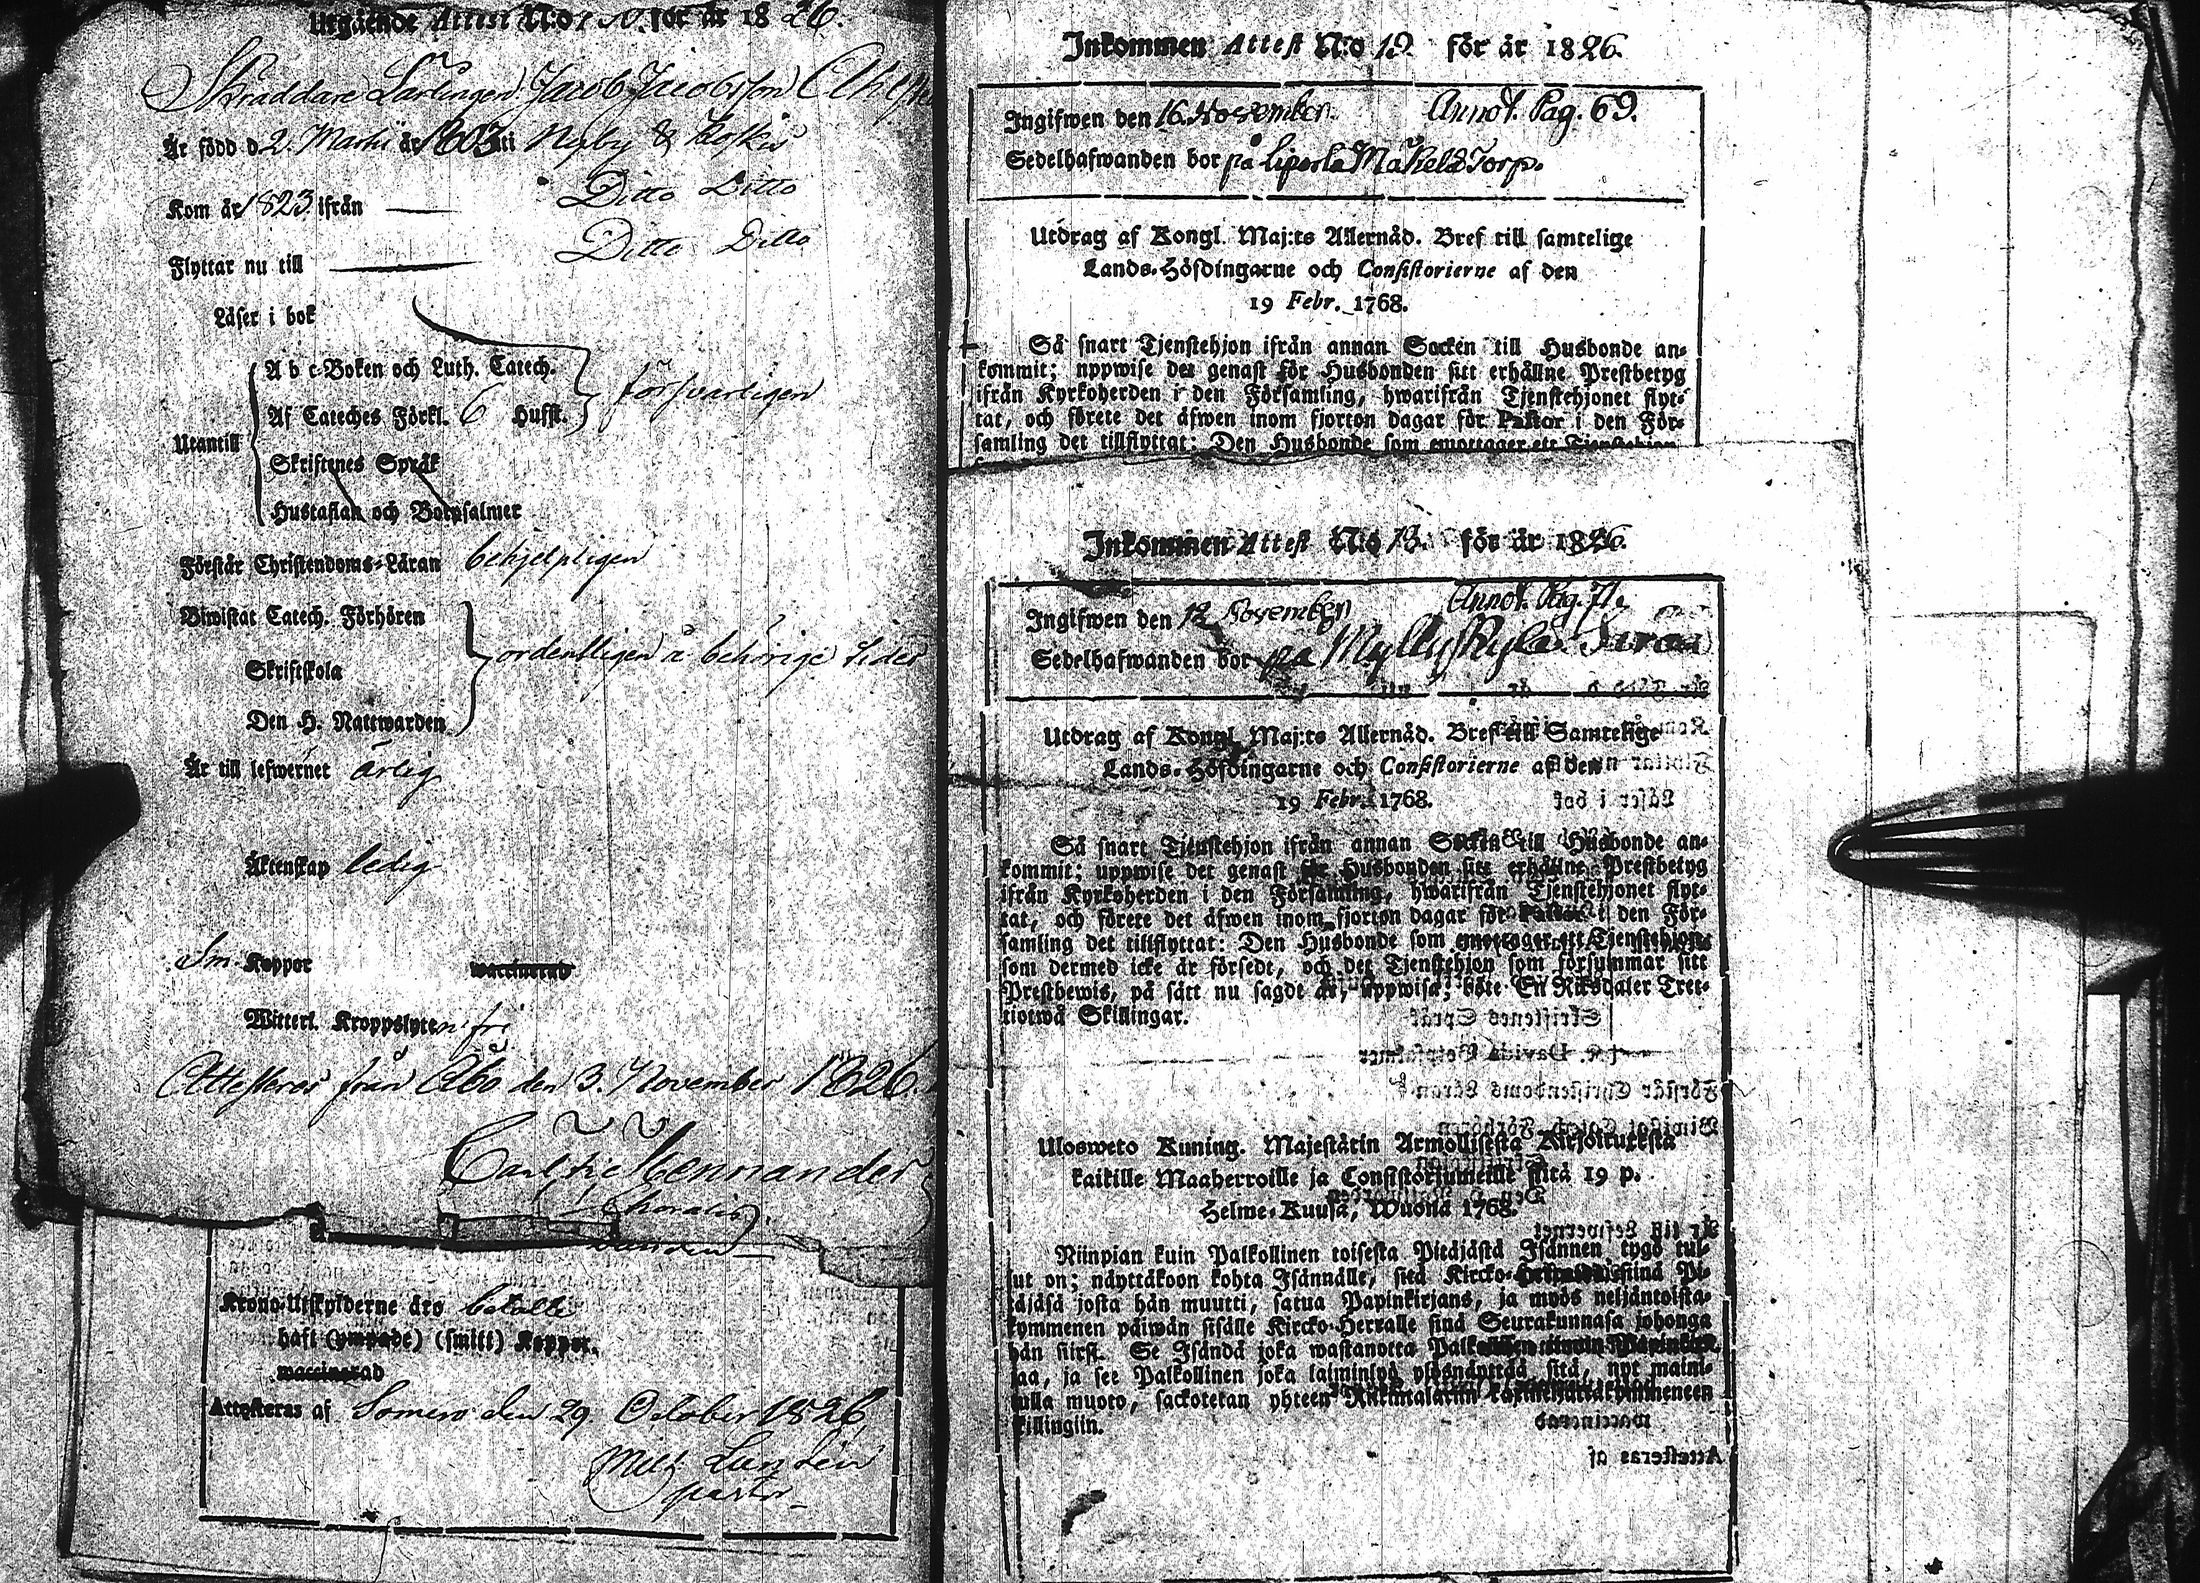 Utgående Attest N:o för år 1826.
Skräddare Lärlingen Jacob Jacobsson
Är född d. 2 Martii år 1803 uti Nyby & Koskis
Kom år 1823 ifrån — Ditto Ditto
Flyttar nu till — Ditto Ditto
Läser i bok
A b c-Boken och Luth. Catech.
försvarligen
Af Cateches Förkl. 6 Hufst.
Utantill
Skriftenes Språk
Hustaflan och Botpsalmer
Förstår Christendoms-Läran behjelpligen
Biwistat Catech. Förhören
ordentligen å behörige tider
Skriftskola
Den H. Nattwarden
Är till lefwernet ärlig
Äktenskap ledig
Sm. Koppor waccinerad
Witterl. Kroppslyten fri
Attesteras från Åbo den 3. November 1826.
Carl Fr. Mennander
Krono-Utskylderne äro betalte
haft (ympade) (smitt) Koppor.
waccinerad
Attesteras af Somero den 29. October 1826
Lundén
pastor
Inkommen Attest N:o 19. för år 1826.
Ingifwen den 16. November. Annot. Pag. 69.
Sedelhafwanden bor på Liperla Mäkelä Torp.
Utdrag af Kongl. Maj:ts Allernåd. Bref till samtelige
Lands-Höfdingarne och Consistorierne af den
19 Febr. 1768.
Så snart Tjenstehjon ifrån annan Socken till Husbonde an-
kommit; uppwise det genast för Husbonden sitt erhållne Prestbetyg
ifrån Kyrkoherden i den Församling, hwarifrån Tjenstehjonet flyt-
tat, och förete det äfwen inom fjorton dagar för Pastor i den För-
samling det tillflyttat: Den Husbonde som emottager ett Tjenstehjon
Inkommen Attest N:o 13. för år 1826.
Ingifwen den 12 November Annot. Pag. 71.
Sedelhafwanden bor på Myllykylä
Utdrag af Kongl. Maj:ts Allernåd. Bref till Samtelige
Lands-Höfdingarne och Consistorierne af den
19 Febr. 1768.
Så snart Tjenstehjon ifrån annan Socken till Husbonde an-
kommit; uppwise det genast för Husbonden sitt erhållne Prestbetyg
ifrån Kyrkoherden i den Församling, hwarifrån Tjenstehjonet flyt-
tat, och förete det äfwen inom fjorton dagar för Pastor i den För-
samling det tillflyttat: Den Husbonde som emottager ett Tjenstehjon
som dermed icke är försedt, och det Tjenstehjon som försummar sitt
Prestbewis, på sätt nu sagdt är, uppwisa; böte En Riksdaler Tret-
tiotwå Skillingar.
Ulosweto Kuning. Majestätin Armollisesta Kirjoituxesta
kaikille Maaherroille ja Consistoriumeille sitä 19 p.
Helme-Kuusa, Wuonna 1768.
Niinpian kuin Palkollinen toisesta Pitäjästä Isännen tygö tul-
lut on; näyttäköön kohta Isännälle, sitä Kircko-Herralda siinä Pi-
täjäsä josta hän muutti, saatua Papinkirjans, ja myös neljäntoista-
kymmenen päiwän sisälle Kircko-Herralle siinä Seurakunnasa johonga
hän siirst. Se Isändä joka wastanotta Palkollisen ilman Papinkirj.
taa, ja see Palkollinen joka laiminlyö ylösnäyttää sitä, nyt maini-
tulla muoto, sackotetan yhteen Rikintalariin kaxineljättäkymmeneen
killingiin.